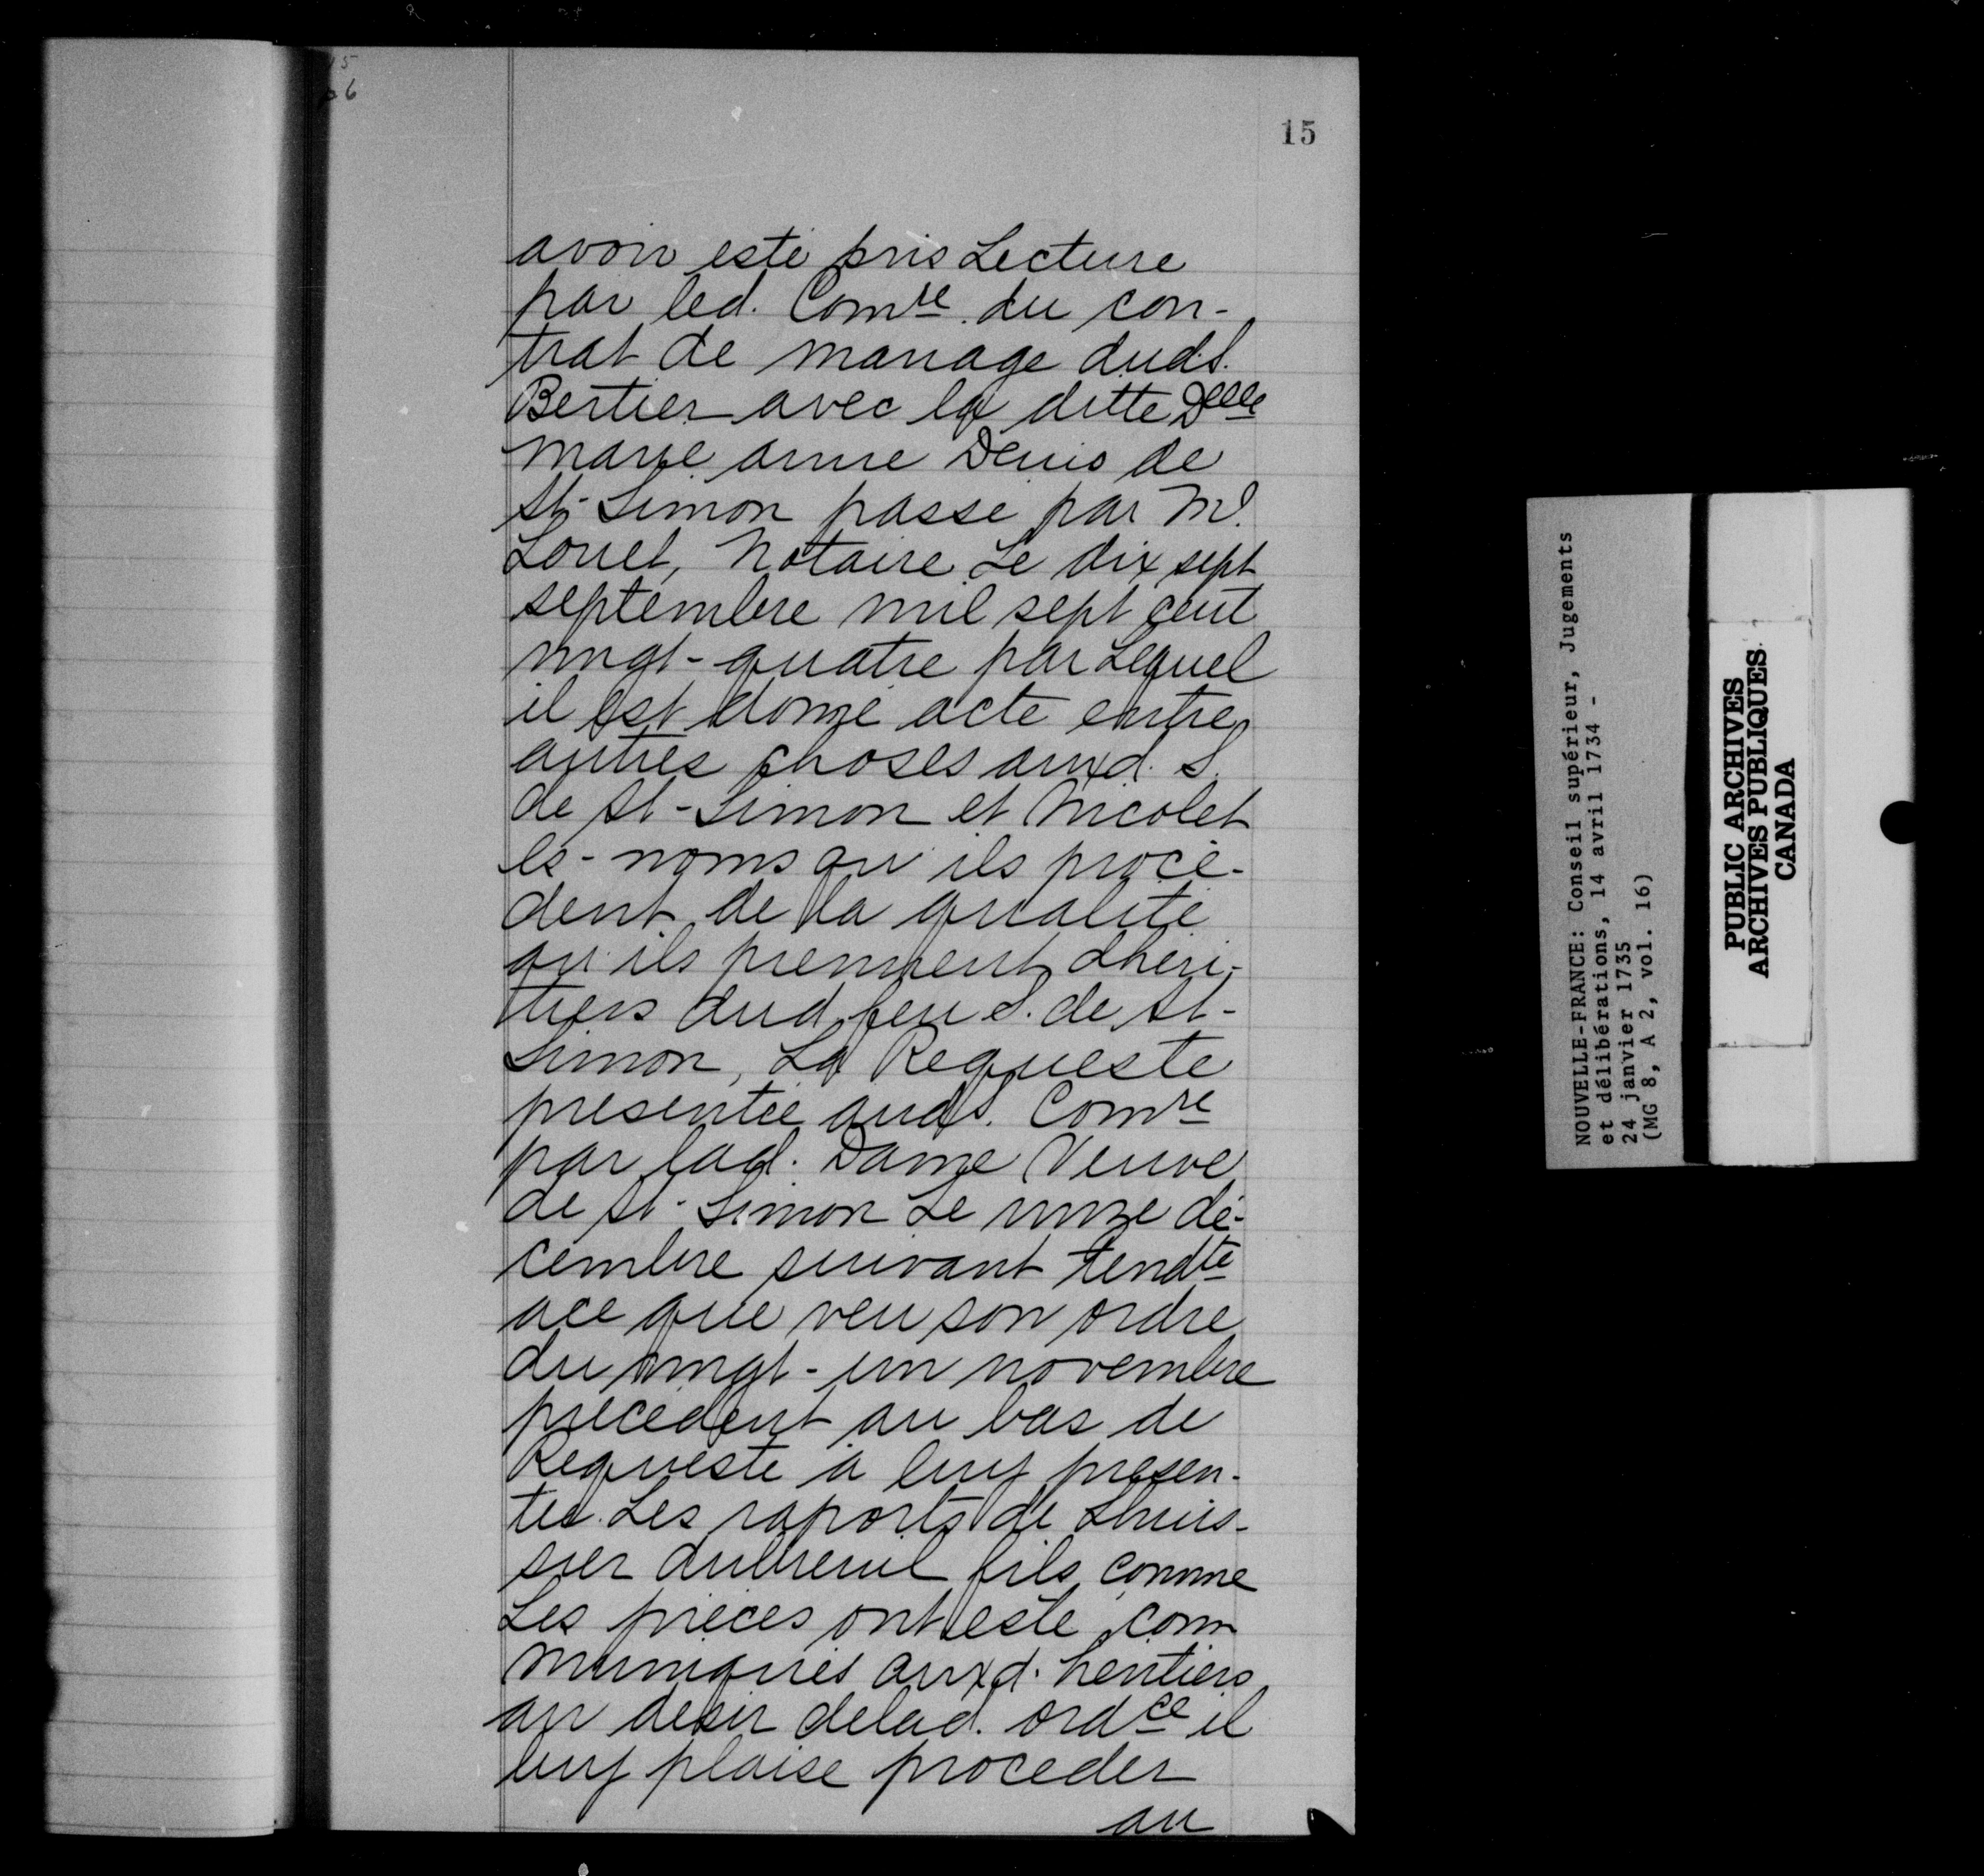 15
avoir esté pris Lecture
par led. Comre. du con-
trat de mariage dud S.
Bertier avec la ditte Delle
marie anne Denis de
St-Simon passé par Me.
Louet, Notaire Le dix sept
septembre mil sept cent
vingt-quatre par Lequel
il est donné acte entre
autres choses auxd. S.
de St-Simon et Nicolet
es-noms qu'ils procè-
dent de la qualité
qu'ils prennent dhéri-
tiers dud feu S. de St-
Simon, La Requeste
presentée aud S. Comre
par lad. Dame Veuve
de St-Simon Le unze dé-
cembre suivant tendte
ace que veu son ordre
du vingt-un novembre
précédent au bas de
Requeste a luy presen-
tée Les raports de Lhuis-
sier dubreuil fils comme
Les pièces ont esté com
muniqués auxd. héritiers
au desir delad. ordce il
luy plaise proceder
au
NOUVELLE-FRANCE: Conseil supérieur, Jugements
et délibérations, 14 avril 1734 -
24 janvier 1735
(MG 8, A 2, vol. 16)
PUBLIC ARCHIVES
ARCHIVES PUBLIQUES
CANADA